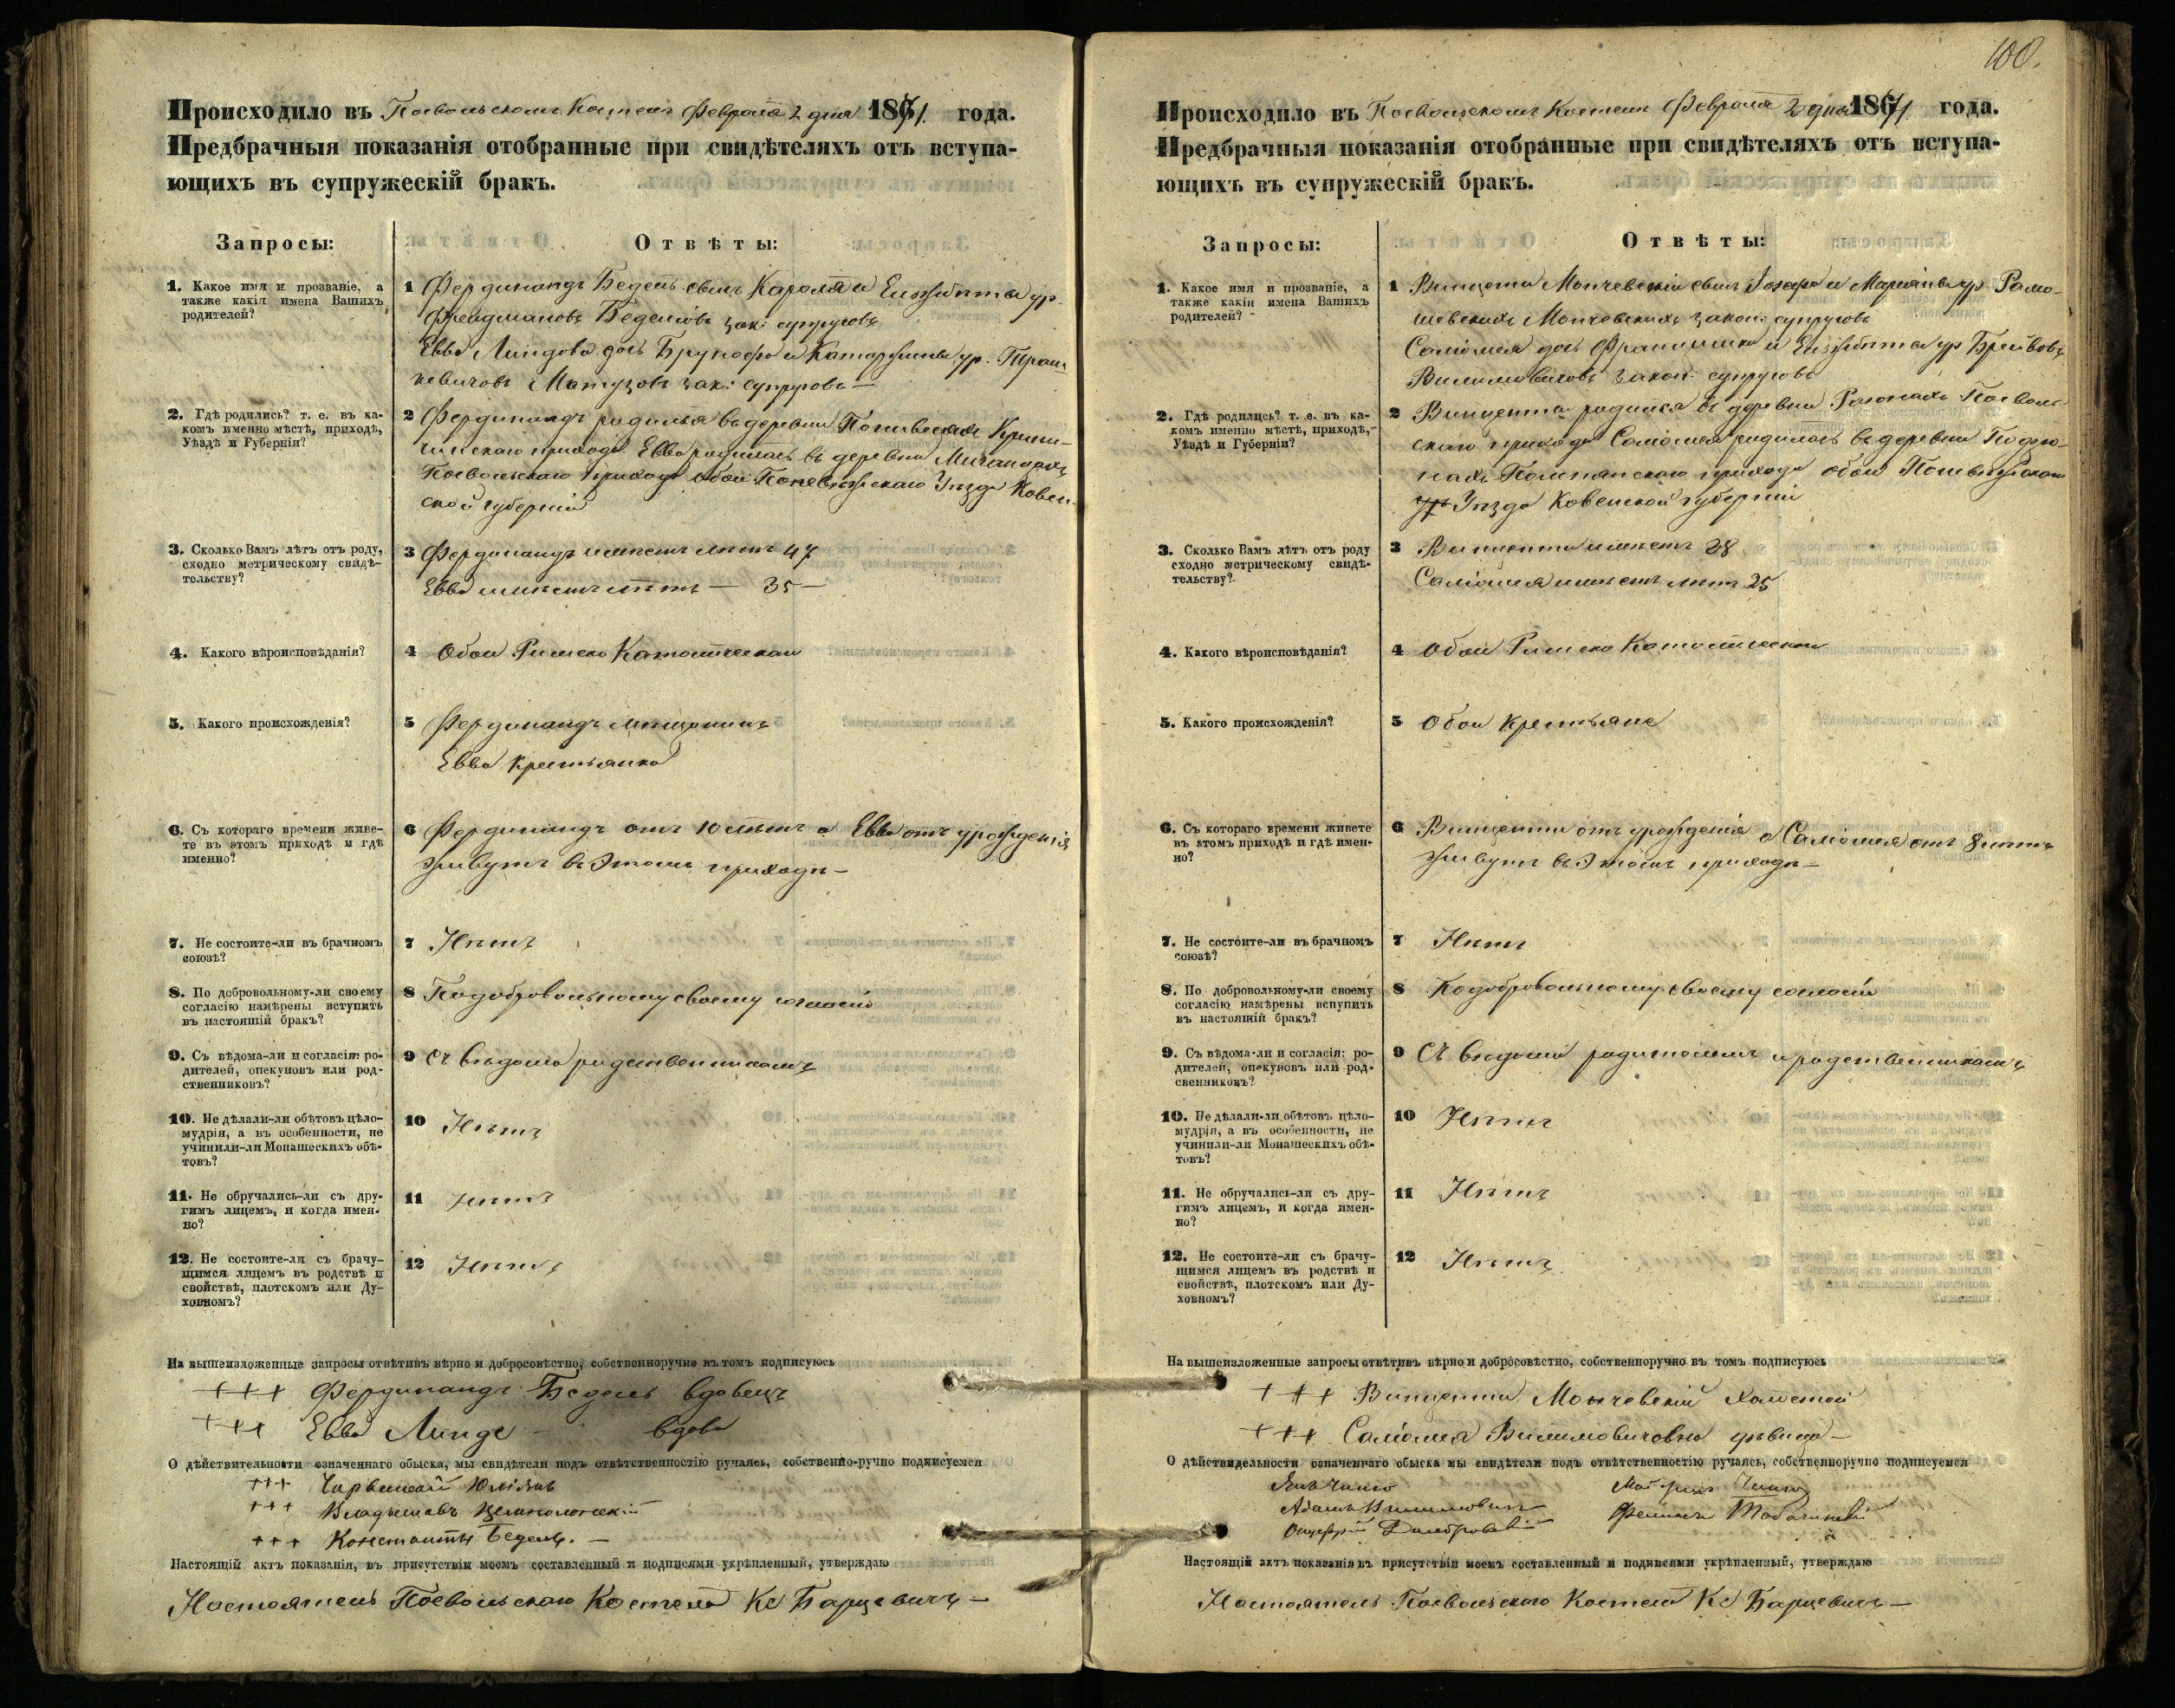 Происходило въ Поевольскомъ Костелѣ Февраля 2 дня 1871 года.
Предбрачныя показанія отобранные при свидѣтеляхъ отъ вступа-
ющихъ въ супружескій бракъ.
Запросы:
Отвѣты:
1. Какое имя и прозваніе, а
также какія имена Вашихъ
родителей?
1 Фердинандъ Бедель сынъ Кароля и Елизабеты ур.
Беделовъ зак: супруговъ
Евва Линдова дочь и Катаржины ур.
зак: супруговъ —
2. Гдѣ родились? т. е. въ ка-
комъ именно мѣстѣ, приходѣ,
Уѣздѣ и Губерніи?
2 Фердинандъ родился въ деревни
прихода Евва родилась въ деревни
Поевольскаго прихода обои Поневѣжскаго Уѣзда Ковен-
ской губерніи
3. Сколько Вамъ лѣтъ отъ роду,
сходно метрическому свидѣ-
тельству?
3 Фердинандъ имѣетъ лѣтъ 47
Евва имѣетъ лѣтъ — 35 —
4. Какого вѣроисповѣданія?
4 Обои Римско Католическаи
5. Какого происхожденія?
5 Фердинандъ мѣщанинъ
Евва крестьянка
6. Съ котораго времени живе-
те въ этомъ приходѣ и гдѣ
именно?
6 Фердинандъ отъ 10 лѣтъ а Евва отъ урожденія
живутъ въ этомъ приходѣ —
7. Не состоите-ли въ брачномъ
союзѣ?
7 Нѣтъ
8. По добровольному-ли своему
согласію намѣрены вступить
въ настоящій бракъ?
8 Подобровольному своему согласію
9. Съ вѣдома-ли и согласія: ро-
дителей, опекуновъ или род-
ственниковъ?
9 Съ вѣдома родственникамъ
10. Не дѣлали-ли обѣтовъ цѣло-
мудрія, а въ особенности, не
учинили-ли Монашескихъ обѣ-
товъ?
10 Нѣтъ
11. Не обручались-ли съ дру-
гимъ лицемъ, и когда имен-
но?
11 Нѣтъ
12. Не состоите-ли съ брачу-
щимся лицемъ въ родствѣ и
свойствѣ, плотскомъ или Ду-
ховномъ?
12 Нѣтъ
На вышеизложенные запросы отвѣтивъ вѣрно и добросовѣстно, собственноручно въ томъ подписуюсь
+++ Фердинандъ Бедель вдовецъ
+++ Евва Линде — вдова
О дѣйствительности означеннаго обыска, мы свидѣтели подъ отвѣтственностію ручаясь, собственно-ручно подписуемся
+++
+++
+++ Константы Бедель. —
Настоящій актъ показанія, въ присутствіи моемъ составленный и подписями укрѣпленный, утверждаю
Настоятель Поевольскаго Костела Кс Барцевичъ —
100.
Происходило въ Поевольскомъ Костелѣ Февраля 2 дня 1871 года.
Предбрачныя показанія отобранные при свидѣтеляхъ отъ вступа-
ющихъ въ супружескій бракъ.
Запросы:
Отвѣты:
1. Какое имя и прозваніе, а
также какія имена Вашихъ
родителей?
1 Винценты Мончевскій сынъ Іозефа и Маріанны ур. Рамо-
шевскихъ Мончевскихъ закон: супруговъ
Саломея дочь Францишка и Елизабеты ур
Вилимовичовъ закон: супруговъ
2. Гдѣ родились? т. е. въ ка-
комъ именно мѣстѣ, приходѣ,
Уѣздѣ и Губерніи?
2 Винценты родился въ деревни Поеволь-
скаго прихода Саломея родилась въ деревни
прихода обои
Уѣзда Ковенской губерніи
3. Сколько Вамъ лѣтъ отъ роду
сходно метрическому свидѣ-
тельству?
3 Винценты имѣетъ 38
Саломея имѣетъ лѣтъ 25
4. Какого вѣроисповѣданія?
4 Обои Римско Католическаи
5. Какого происхожденія?
5 Обои крестьяне
6. Съ котораго времени живете
въ этомъ приходѣ и гдѣ имен-
но?
6 Винценты отъ урожденія а Саломея отъ 8 лѣтъ
живутъ въ этомъ приходѣ —
7. Не состоите-ли въ брачномъ
союзѣ?
7 Нѣтъ
8. По добровольному-ли своему
согласію намѣрены вступить
въ настоящій бракъ?
8 Подобровольному своему согласію
9. Съ вѣдома-ли и согласія: ро-
дителей, опекуновъ или род-
свенниковъ?
9 Съ вѣдома родителемъ и родственникамъ
10. Не дѣлали-ли обѣтовъ цѣло-
мудрія, а въ особенности, не
учинили-ли Монашескихъ обѣ-
товъ?
10 Нѣтъ
11. Не обручались-ли съ дру-
гимъ лицемъ, и когда имен-
но?
11 Нѣтъ
12. Не состоите-ли съ брачу-
щимся лицемъ въ родствѣ и
свойствѣ, плотскомъ или Ду-
ховномъ?
12 Нѣтъ
На вышеизложенные запросы отвѣтивъ вѣрно и добросовѣстно, собственноручно въ томъ подписуюсь
+++ Винценты Мончевскій холостой
+++ Саломея Вилимовичовна дѣвица —
О дѣйствидельности означеннаго обыска мы свидѣтели подъ отвѣтственностію ручаясь, собственноручно подписуемся
Адамъ
Настоящій актъ показанія въ присутствіи моемъ составленный и подписями укрѣпленный, утверждаю
Настоятель Поевольскаго Костела Кс Барцевичъ —